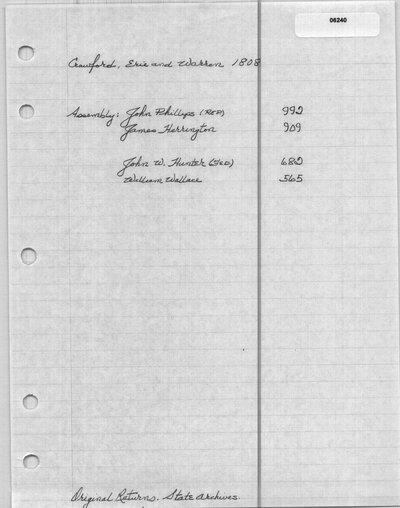 06240
Crawford, Erie and Warren 1808
Assembly: John Phillips (REP) 992
James Herrington 909
John W. Hunter (FED) 682
William Wallace 565
Original Returns. State Archives.